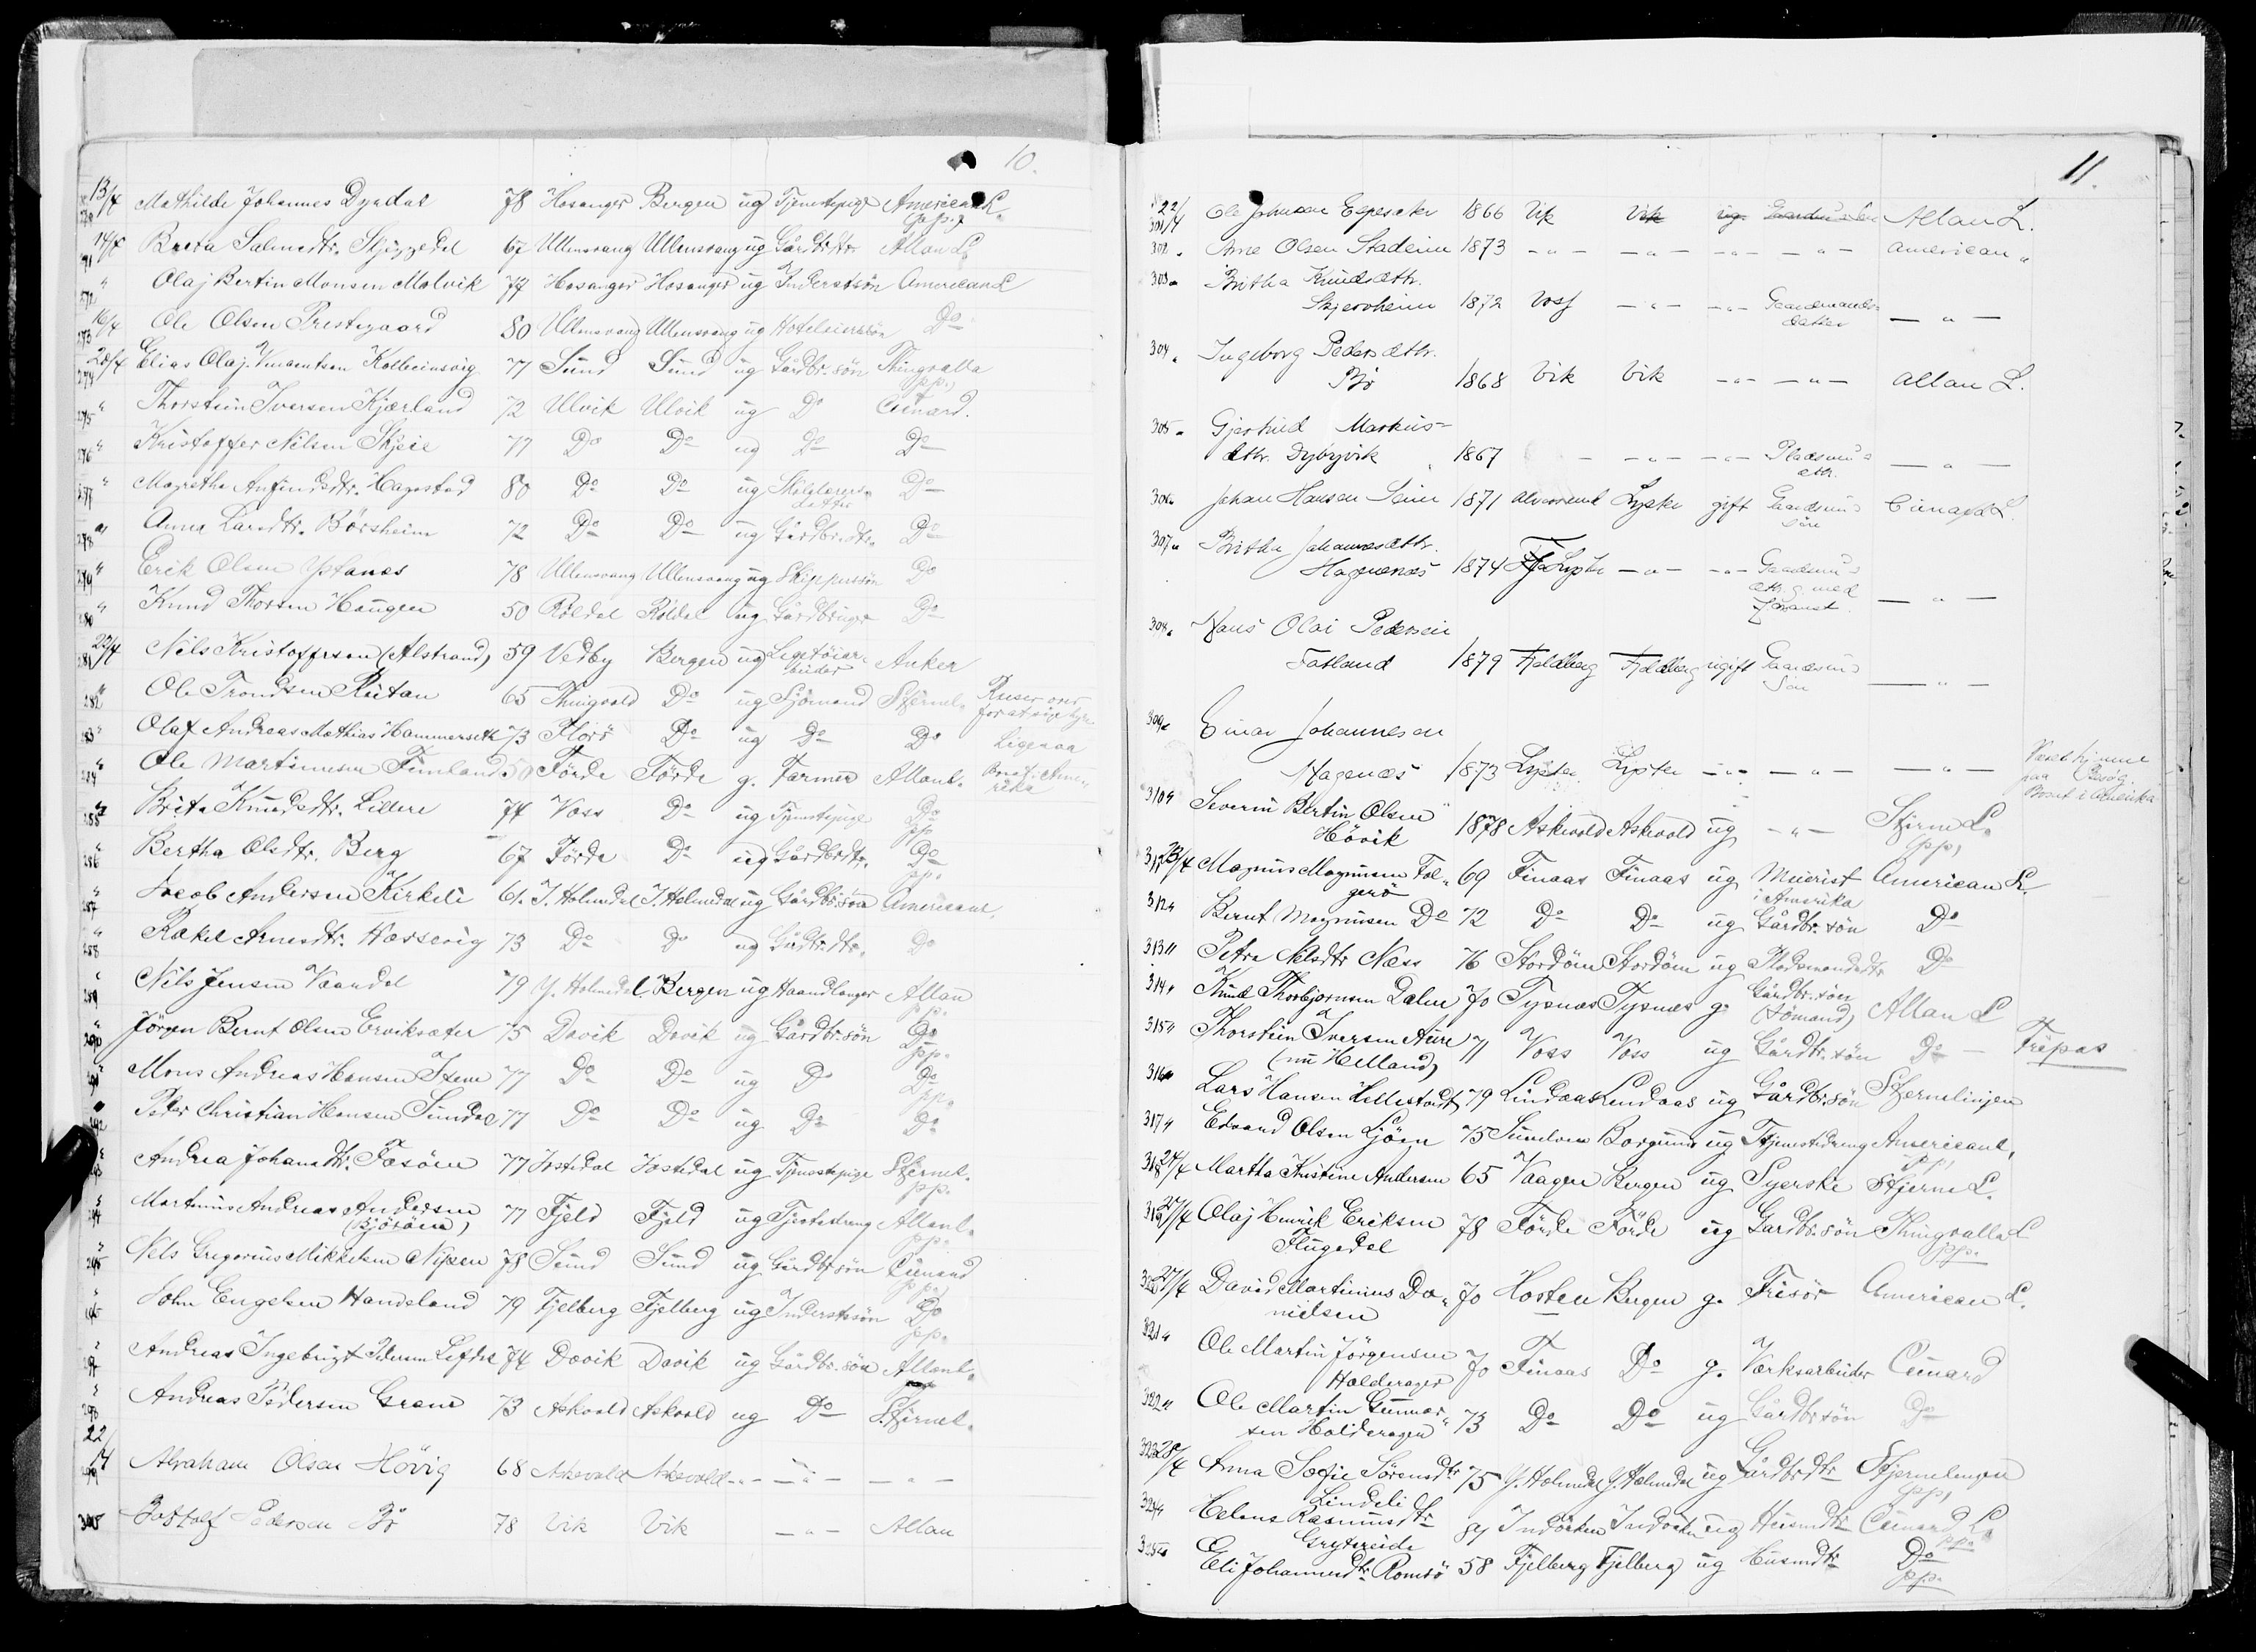 10.
13/4 Mathilde Johannes Dyrdal 78 Hosanger Bergen ug Tjenestepige American L.
270 pp.
14/4 Breta Salmedtr. Skjeggedal 67 Ullensvang Ullensvang ug Gårdbr.dtr Allan L
271
" Olaj Bertin Monsen Molvik 74 Hosanger Hosanger ug Inderstsön American L
272
16/4 Ole Olsen Prestegaard 80 Ullensvang Ullensvang ug Hoteleierssön Do
273
20/4 Elias Olaj Vincentsen Kolbeinsvig 77 Sund Sund ug Gårdbr.sön Thingvalla
274 pp.
" Thorstein Iversen Kjærland 72 Ulvik Ulvik ug Do Cunard.
275
" Kristoffer Nilsen Skjeie 77 Do Do ug Do Do
276
" Magretha Anfindsdtr. Hagestad 80 Do Do ug Do
277 datter
" Anna Larsdtr. Börsheim 72 Do Do ug Gårdbr.dtr. Do
278
" Erik Olsen Ystanes 78 Ullensvang Ullensvang ug Skipperssön Do
279
" Knud Thorsen Haugen 50 Röldal Röldal ug Gårdbruger Do
280
22/4 Nils Kristoffersen (Alstrand) 59 Vedby Bergen ug Legetöiar- Anker
281 beider
" Ole Trondsen Rutan 65 Thingvold Do ug Sjömand Stjernel. Reiser over
282 for at söge hyre
" Olaf Andreas Mathias Hammerseth 73 Florö Do ug Do Do Ligesaa
283
" Ole Martinusen Fimland 50 Förde Förde g. Farmer Allanl. Bosat i Ame-
284 rika
" Brita Knudsdtr. Lillere 74 Voss Do ug Tjenestepige Do
285 pp
" Bertha Olsdtr. Berg 67 Förde Do ug Gårdbrdtr. Do
286 pp.
" Jacob Andersen Kirkeli 61. I. Holmedal I. Holmedal ug Gårdbr.sön Americanl.
287
" Rakel Arnesdtr. Hæssevig 73 Do Do ug Gårdbr.dtr. Do
288
" Nils Jensen Vaardal 79 Y. Holmedal Bergen ug Haandlanger Allan
289 pp.
" Jörgen Bernt Olsen Erviksæter 75 Davik Davik ug Gårdbr.sön Do
290 pp.
" Mons Andreas Hansen Stene 77 Do Do ug Do Do
291 pp.
Peter Christian Hansen Sundal 77 Do Do ug Do Do
292
Andrea Johansdtr. Fosöen 77 Jostedal Jostedal ug Tjenestepige Stjernel.
pp.
Martinus Andreas Andersen 77 Fjeld Fjeld ug Tjenestedreng Allanl.
294 (Björöen) pp.
" Nils Gregorius Mikkelsen Nipen 78 Sund Sund ug Gårdbrsön Cunard
295 pp.
John Engelsen Handeland 79 Fjelberg Fjelberg ug Inderstesön Do
296 pp.
Andreas Ingebrigt Pedersen Lefdal 74 Davik Davik ug Gårdbr.sön Allanl.
297
Andreas Pedersen Grane 73 Askvold Askvold ug Do Stjernel.
298
22/4 Abraham Olsen Hövig 68 Askevold Askevold - " - - " - - " -
299
300 Botolf Pedersen Bö 78 Vik Vik - " - Allan
11.
22/4 Ole Johnsen Elpesæter 1866 Vik Vik ug. Allan L.
301
302 " Arne Olsen Stadeim 1873 - " - - " - - " - - " - American "
303 " Britha Knudsdttr.
Skjerveheim 1872 Voss - " - - " - Gaardmands- - " -
datter
304 " Ingeborg Pedersdttr.
Bö 1868 Vik Vik - " - - " - Allan L.
305 " Gjertrud Markus-
dttr. Dybyvik 1867 - - " - - " - Pladsmds - " -
dttr.
306 " Johan Hansen Seim 1871 Alversund Lyster gift Gaardmds Cunard L.
sön
307 " Britha Johannesdttr.
Hagenæs 1874 Lyster - " - - " - Gaardmds
dttr. g. med
foranst. - " -
308 " Hans Olai Pedersen
Fatland 1879 Fjeldberg Fjeldberg ugift Gaardmds
Sön - " -
309 " Einar Johannesen
Hagenæs 1873 Lyster Lyster - " - - " - - " - Været hjemme
paa Besög.
Bosat i Amerika
310 " Severin Bertin Olsen
Hövik 1878 Askevold Askvold ug - " - Stjerne L.
pp,
311 23/4 Magnus Magnusen Fol- 69 Finaas Finaas ug Meierist American L
gerö i Amerika
312 " Bernt Magnusen Do 72 Do Do ug Gårdbr.sön Do
313 " Petra Nilsdtr Næss 76 Stordöen Stordöen ug Pladsmandsdtr Do
314 " Knud Thorbjornsen Dalen 70 Tysnæs Tysnæs g. Gårdbr.sön
(sömand) Allan L
315 " Thorstein Iversen Aure 71 Voss Voss ug Gårdbr.sön Do - Fripas
(nu Helland)
316 " Lars Hansen Hellestvedt 79 Lindaas Lindaas ug Gårdbr.sön Stjernelinjen
317 " Edvard Olsen Ljöen 75 Sunelven Borgund ug Tjenestedreng Americanl,
pp,
318 24/4 Martha Kristine Andersen 65 Vaagen Bergen ug Syerske Stjerne L.
319 27/4 Olaj Henrik Eriksen 78 Förde Förde ug Gardbr.sön Thingvalla L
Flugedal pp.
320 27/4 David Martinius Da- 70 Hosten Bergen g. Frisör American L.
nielsen
321 " Ole Martin Jörgensen
Holderager 70 Finaas Do g. Værksarbeider Cunard
322 " Ole Martin Gunnar-
sen Holderager 73 Do Do ug Gårdbrsön Do
323 28/4 Anna Sofie Sörensdtr 75 Y. Holmedal Y. Holmedal ug Gårdbrdtr Stjernelinjen
Lindeli pp,
324 " Helene Rasmusdtr Indviken Indviken ug Husmdtr Cunard L.
Grytereide pp.
325 " Eli Johannesdtr. Romsö 58 Fjelberg Fjelberg ug Husmdtr Do
pp.